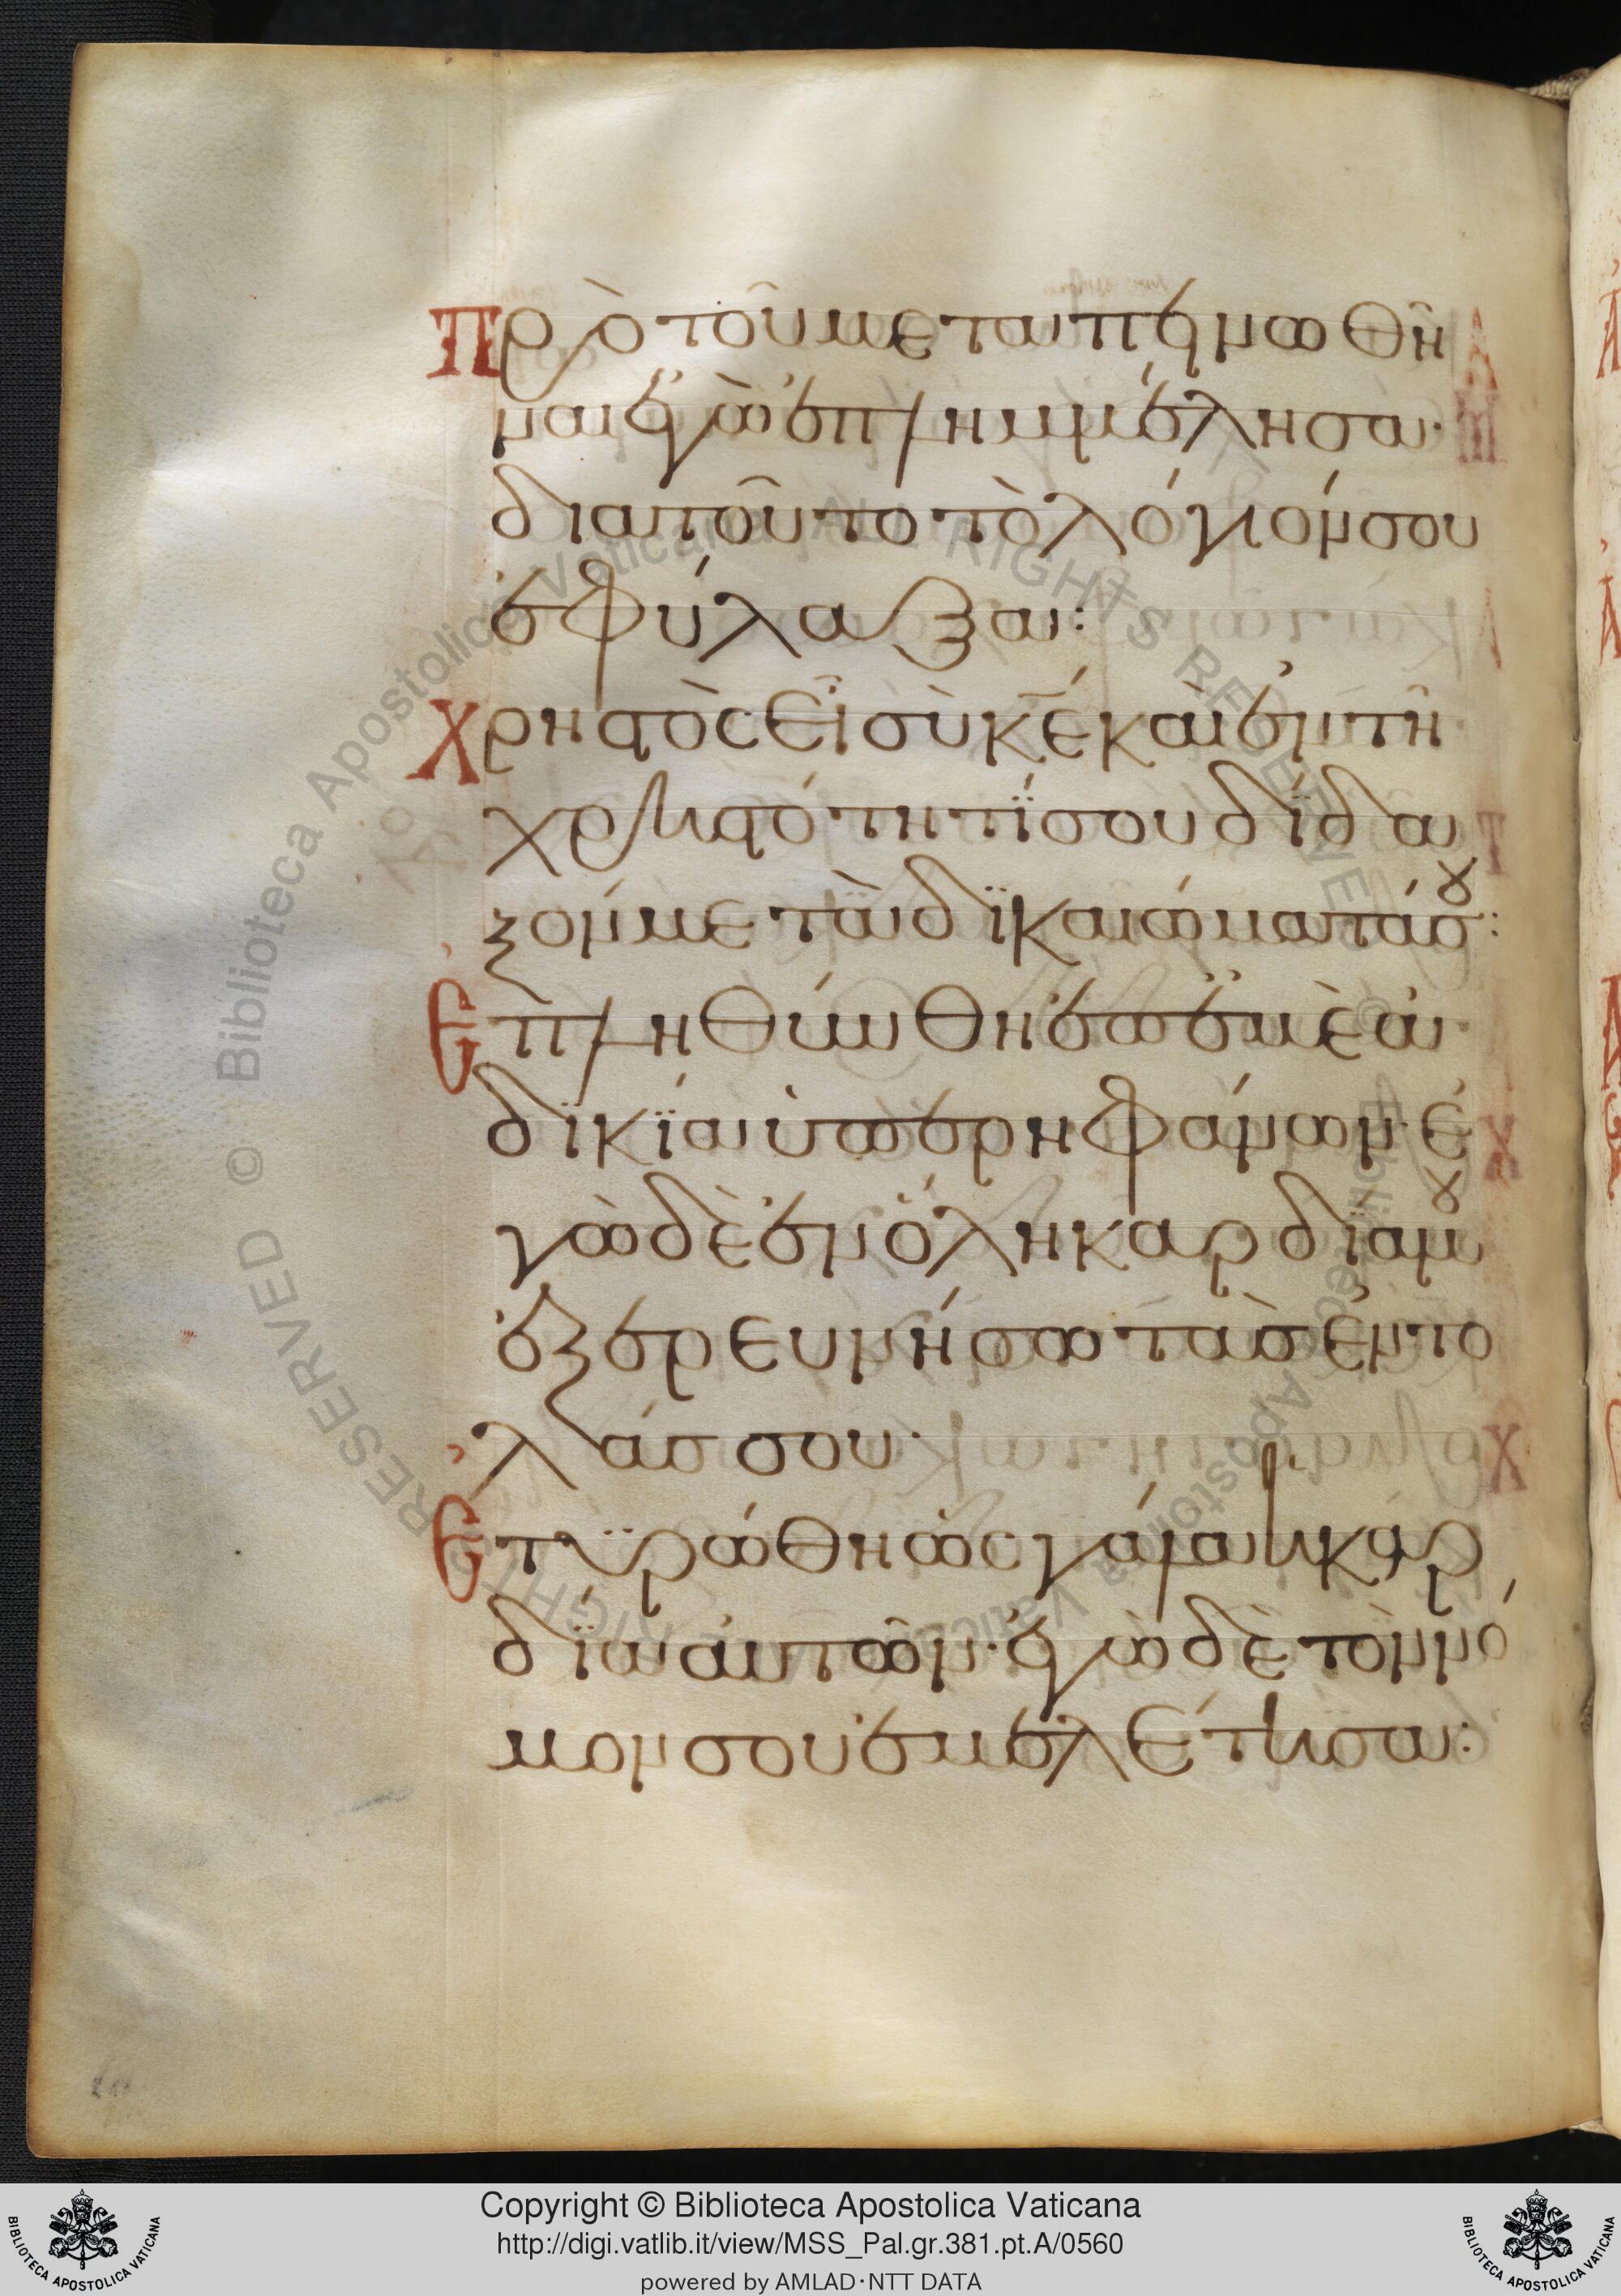 Πρὸ τοῦ με ταπεινωθῆ
ναι ἐγὼ ἐπλημμέλησα·
διατοῦτο τὸ λόγιόν σου
ἐφύλαξα:
Χρηστὸς εἶ σὺ κ̅ε̅ καὶ ἐν τῆ
χρηστότητΐ σου δΐδα
ξόν με τὰ δϊκαιώματά σου:
Ἐπληθύνθη ἐπ ἐμὲ ἀ
δϊκΐα ὑπερηφάνων· ἐ
γὼ δὲ ἐν ὅλη καρδΐα μου
ἐξερευνήσω τὰς ἐντο
λάς σου·
Ἐτυρώθη ὡς γάλα ἡ καρ
δΐα αὐτῶν· ἐγὼ δὲ τὸν νό
μον σου ἐμελέτησα:
Biblioteca Apostolica Vaticana ALL RIGHTS RESERVED ©
Copyright © Biblioteca Apostolica Vaticana
http://digi.vatlib.it/view/MSS_Pal.gr.381.pt.A/0560
powered by AMLAD·NTT DATA
BIBLIOTECA APOSTOLICA VATICANA
BIBLIOTECA APOSTOLICA VATICANA